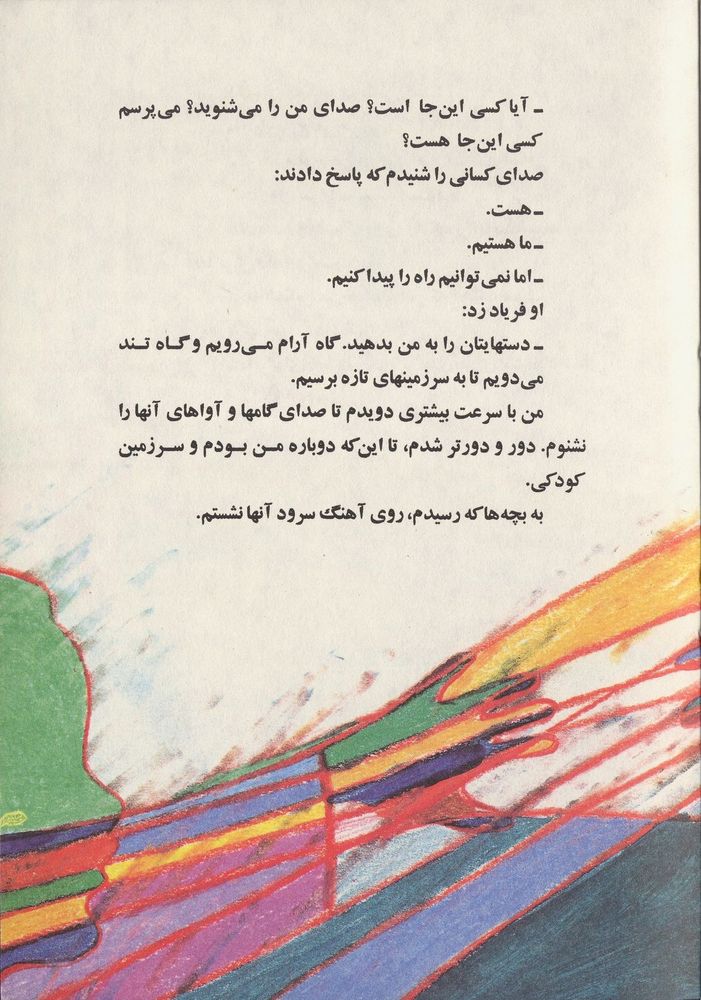 ـ آیا کسی این‌جا است؟ صدای من را می‌شنوید؟ می‌پرسم
کسی این‌جا هست؟
صدای کسانی را شنیدم که پاسخ دادند:
ـ هست.
ـ ما هستیم.
ـ اما نمی‌توانیم راه را پیدا کنیم.
او فریاد زد:
ـ دستهایتان را به من بدهید. گاه آرام مـی‌رویم و گـاه تـند
می‌دویم تا به سرزمینهای تازه برسیم.
من با سرعت بیشتری دویدم تا صدای گامها و آواهای آنها را
نشنوم. دور و دورتر شدم، تا این‌که دوباره مـن بـودم و سـرزمین
کودکی.
به بچه‌ها که رسیدم، روی آهنگ سرود آنها نشستم.